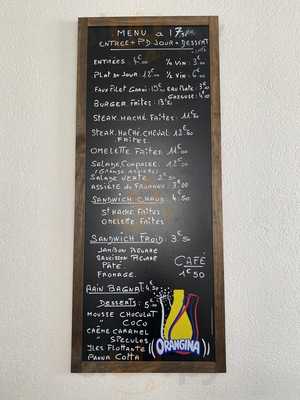 MENU a 17
ENTREE + PD JOUR + DESSERT
ENTRÉES 7€00 ¼ Vin: 3€00
PLAT DU JOUR 12€00 ½ Vin: 6€00
FAUX FILET GARNI: 15€ EAU PLATE: 3€
GAZEUSE: 4€
BURGER FRITES: 13€
STEAK HACHÉ FRITES: 11€00
STEAK HACHÉ CHEVAL: 12€50
FRITES
OMELETTE FRITES: 11€00
SALADE COMPOSÉE: 12€50
(GRANDE ASSIETTE)
SALADE VERTE 2€50
ASSIETTE DU FROMAGE 3€00
SANDWICH CHAUD 4€50
ST HACHÉ FRITES
OMELETTE FRITES
SANDWICH FROID: 3€50
JAMBON BEURRE
SAUCISSON BEURRE
PÂTÉ
FROMAGE
CAFÉ
1€50
PAIN BAGNAT: 4€50
DESSERTS: 5€00
MOUSSE CHOCOLAT
" COCO
CRÈME CARAMEL
" SPECULOS
ILES FLOTTANTE
PANNA COTTA
ORANGINA